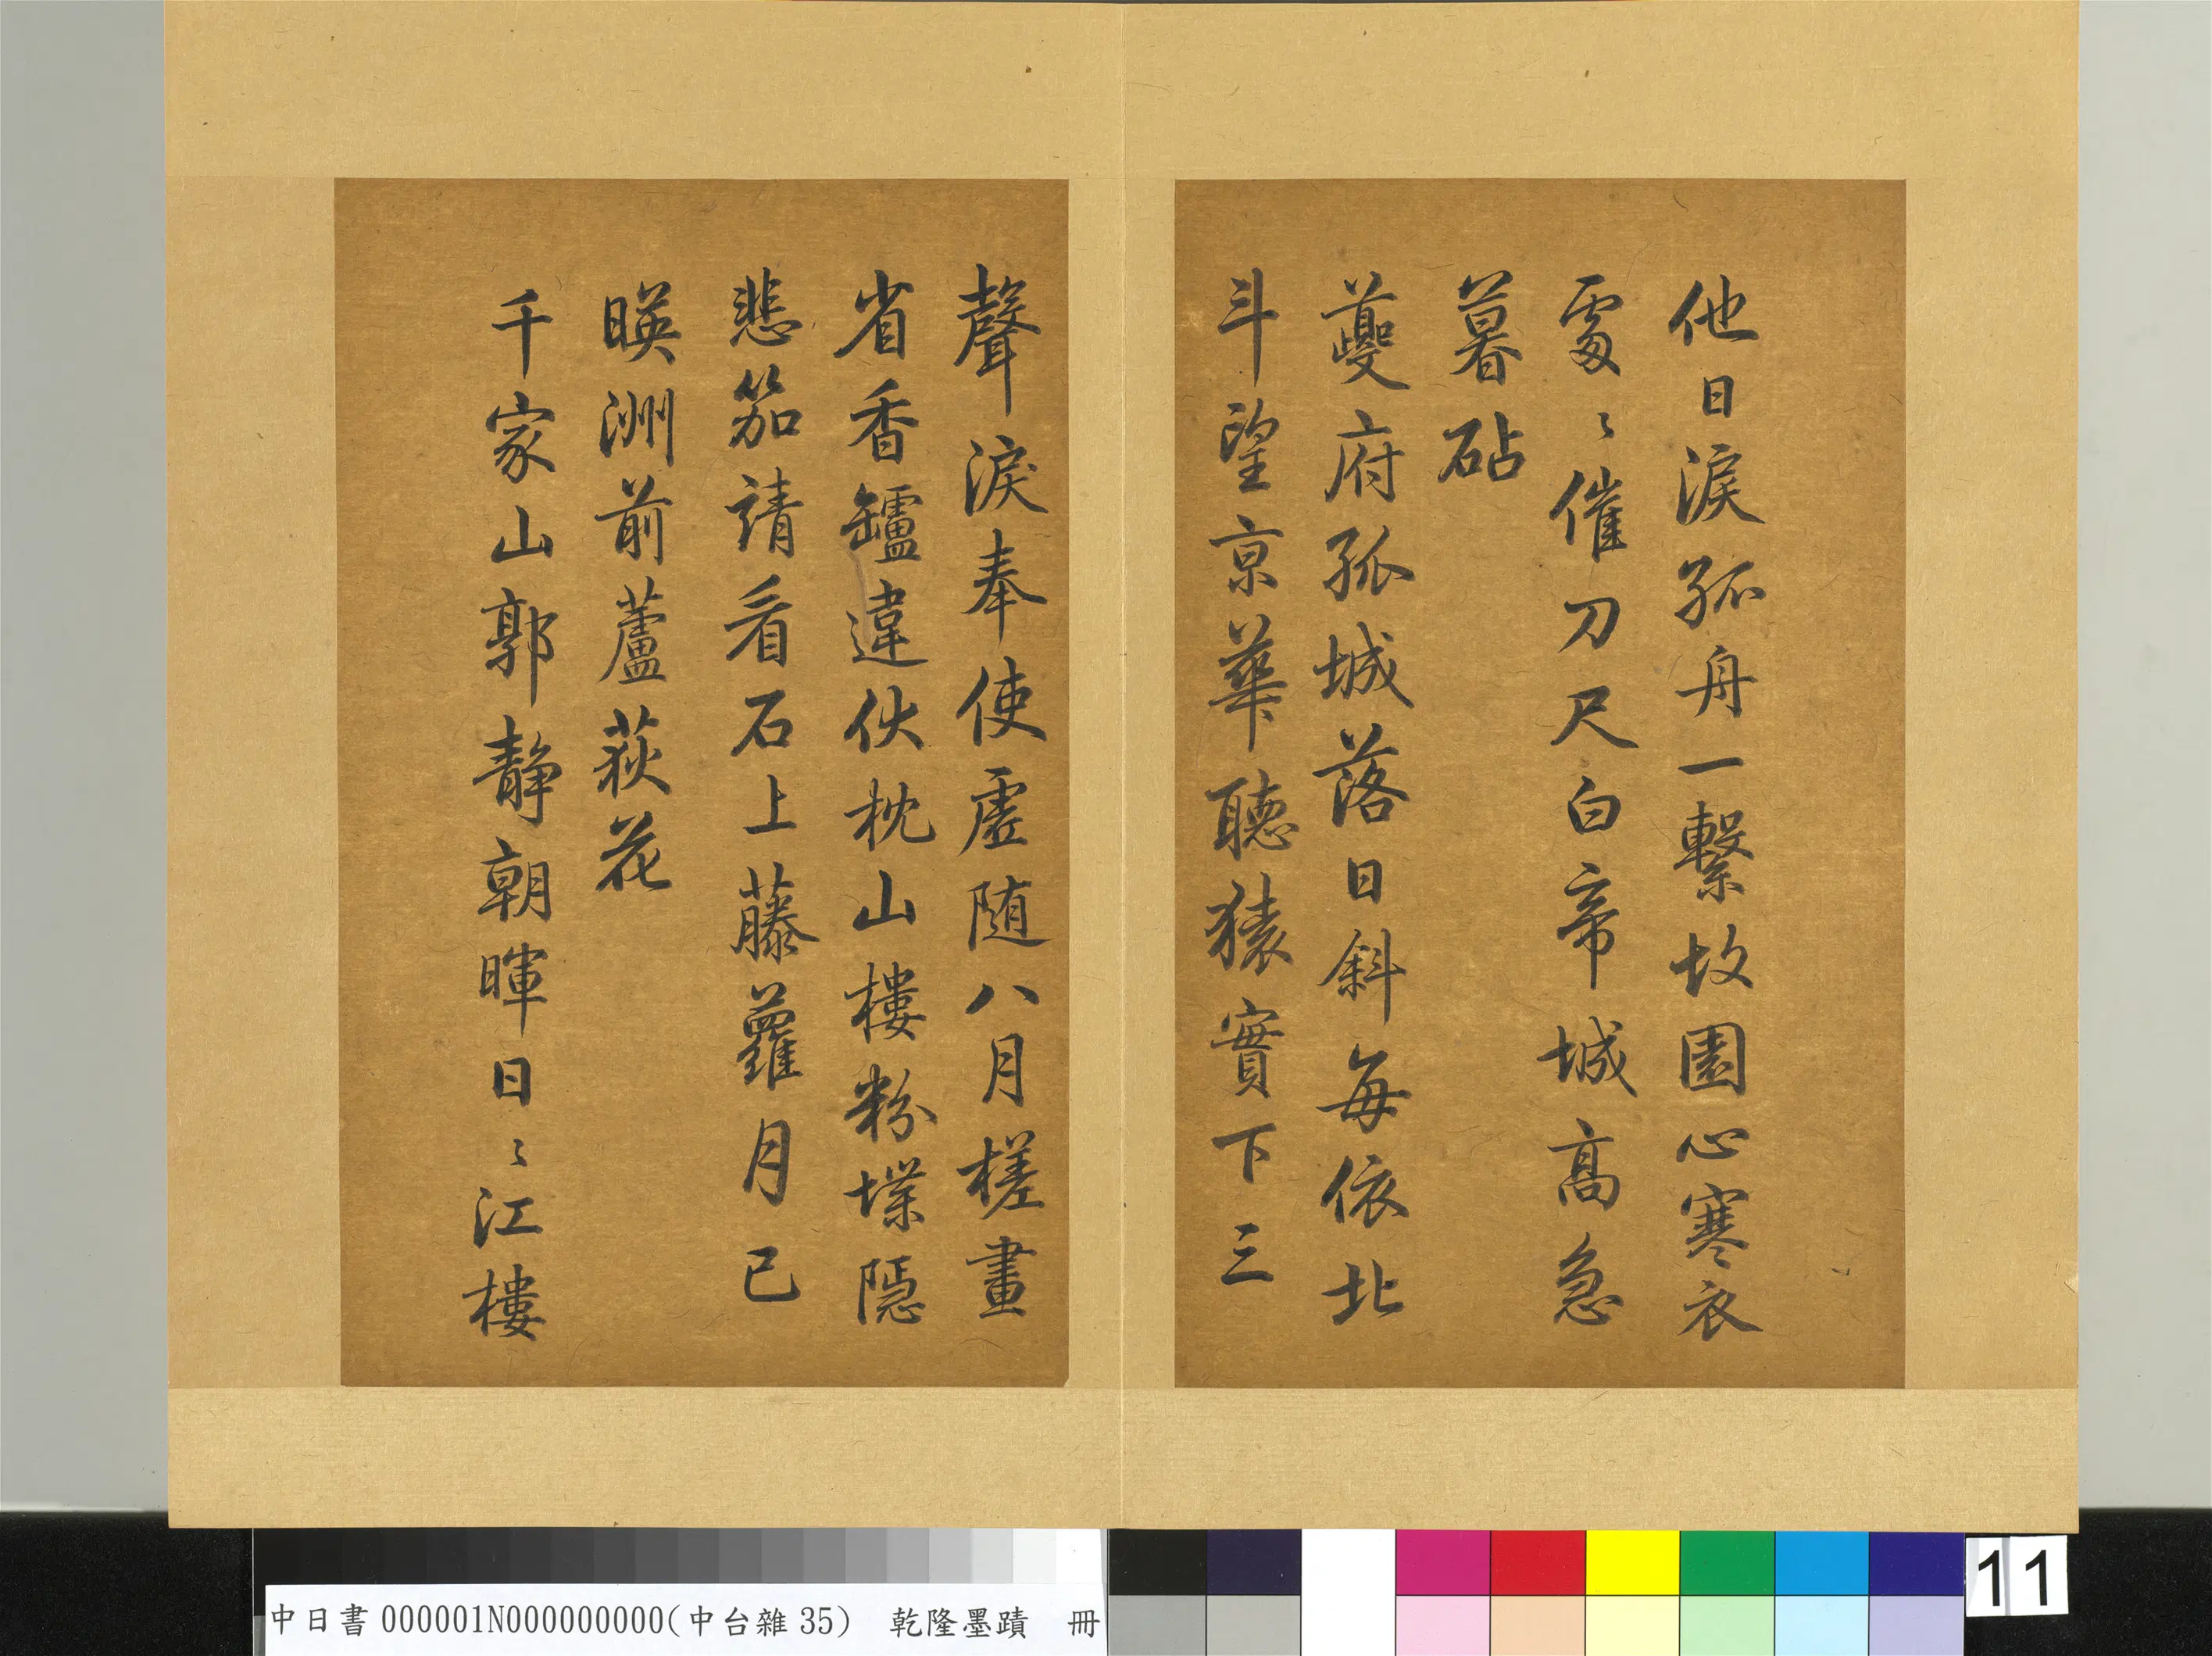 他日淚孤舟一繫故園心寒衣
處〻催刀尺白帝城高急
暮砧
夔府孤城落日斜每依北
斗望京華聽猿實下三
聲淚奉使虛随八月槎畫
省香鑪違伏枕山樓粉堞隱
悲笳請看石上藤蘿月已
暎洲前蘆荻花
千家山郭靜朝暉日〻江樓
中日書000001N000000000(中台雜35) 乾隆墨蹟 冊
11